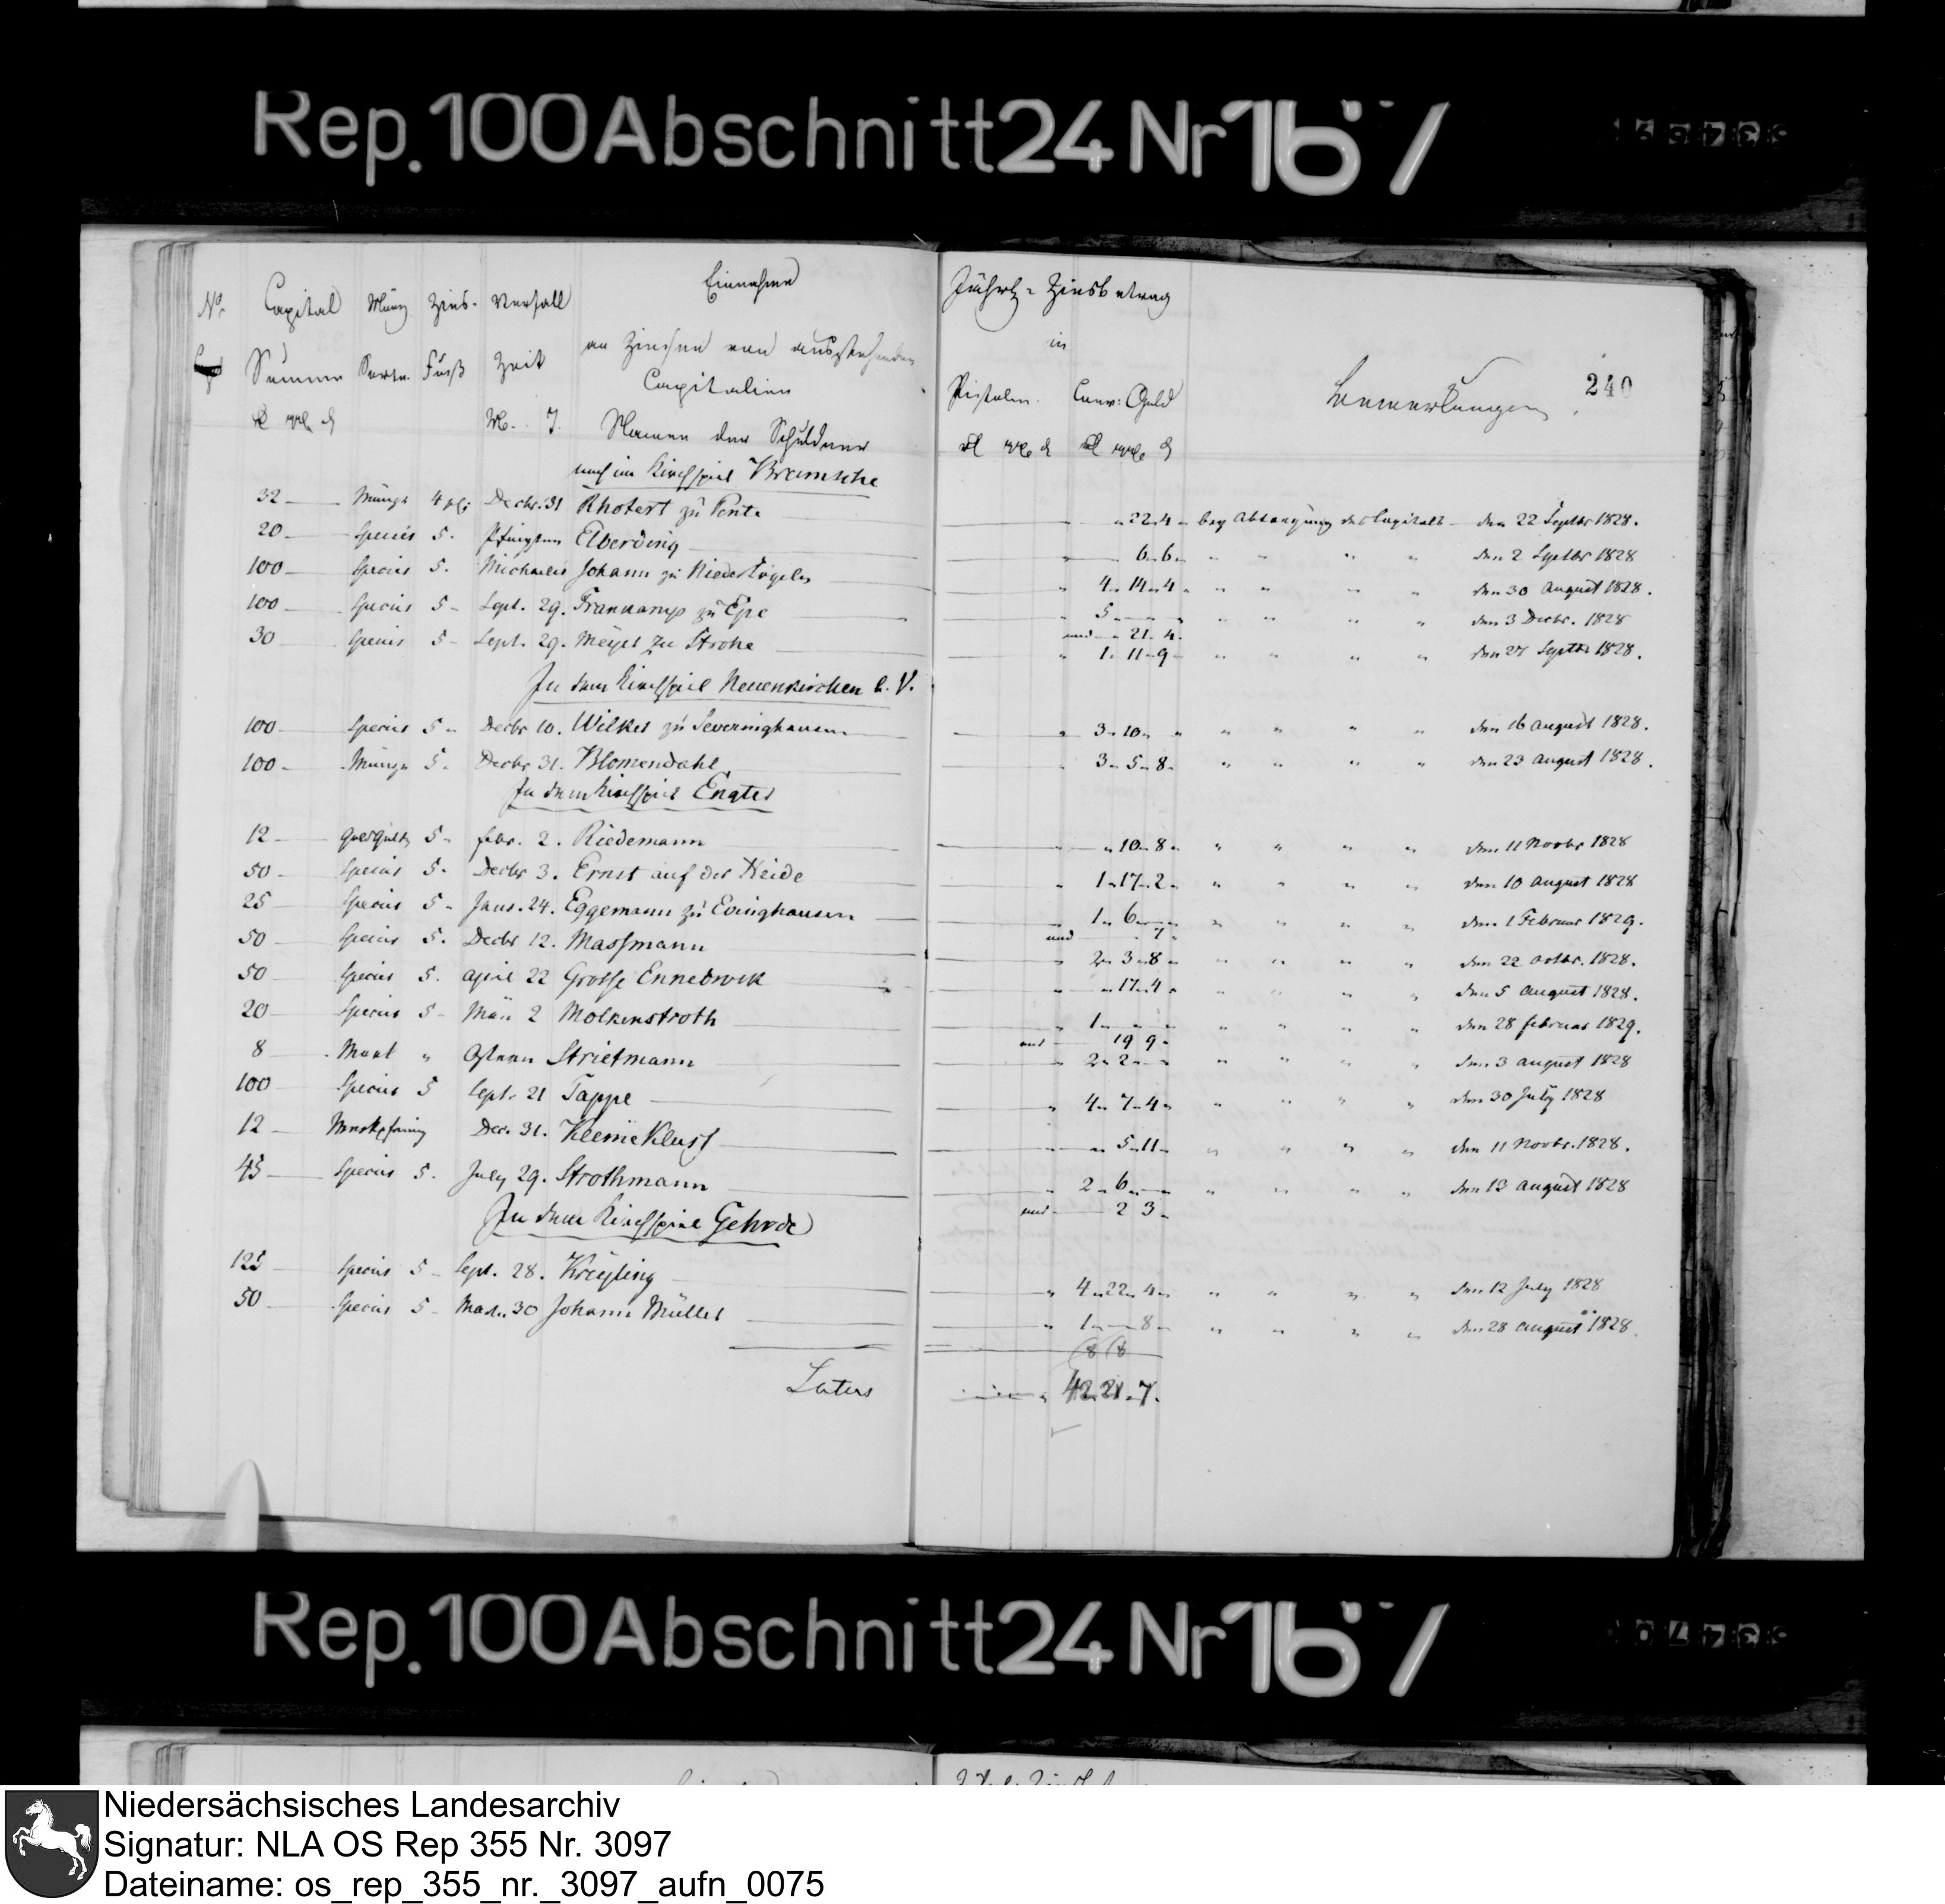 Rep. 100 Abschnitt 24 Nr 167
240
No. Capital Münz Zins- Verfall Einnahme Jährl: Zinsbetrag
Summe Sorte. Fuß Zeit an Zinsen von ausstehenden in
Capitalien Pistolen. Conv: Geld Bemerkungen
M. T. Namen der Schuldner
noch im Kirchspiel Bramsche
32 Münze 4 Decbr. 31 Rhotert zu Pente " 22 " 4 " bey Abtragung des Capitals den 22 Septbr 1828.
20 Species 5. Pfingsten Elberding 6 " 6 " " " " " den 2 Septbr 1828
100 Species 5. Michaelis Johann zu 4 " 14 " 4 " " " " " den 30 August 1828.
100 Species 5 Sept. 29. Frankamp zu Epe 5 " " " " " den 3 Decbr. 1828
und " 21. 4.
30 Species 5 Sept. 29. Meyer zu Strohe 1. 11 " 9 " " " " den Septbr 1828.
In dem Kirchspiel Neuenkirchen b. V.
100 Species 5 " Decbr 10. Wilker zu Severinghausen 3 " 10 " " " " " " den 16 August 1828.
100 Münze 5. Decbr 31. Blomendahl 3 " 5 " 8. " " " " den 23 August 1828.
In dem Kirchspiel Engter
12 5 " febr. 2. Riedemann " 10 " 8 " " " " " den 11 Novbr 1828
50 Species 5. Decbr 3. Ernst auf der Heide 1 " 17 " 2 " " " " " den 10 August 1828
25 Species 5 " Janr. 24. Eggemann zu Evinghausen 1 " 6 " " " " " den 1 Februar 1829.
und 7 "
50 Species 5. Decbr 12. Massmann 2 " 3 " 8 " " " " " den 22 octbr. 1828.
50 Species 5. April 22 Grosse Ennebrock " 17 " 4 " " " " " den 5 August 1828.
20 Species 5 " 2 Molkenstroth 1 " " " " " " den 28 februar 1829.
und 19 9 "
8 " Ostern Strietmann 2 " 2 " " " " " den 3 August 1828
100 Species 5 Sept. 21 Tappe 4 " 7 " 4 " " " " " den 30 July 1828
12 Dec. 31. Kleine Klust " 5 " 11 " " " " " den 11 Novbr. 1828.
45 Species 5. July 29. Strothmann 2 " 6 " " " " " den 13 August 1828
und 2 3 "
In dem Kirchspiel Gehrde
125 Species 5 " Sept. 28. 4 " 22 " 4 " " " " " den 12 July 1828
50 Species 5 " 30 Johann Müller 1 " 8 " " " " " den 28 August 1828
Latus 42. 21. 7.
Rep. 100 Abschnitt 24 Nr 167
Niedersächsisches Landesarchiv
Signatur: NLA OS Rep 355 Nr. 3097
Dateiname: os_rep_355_nr._3097_aufn_0075